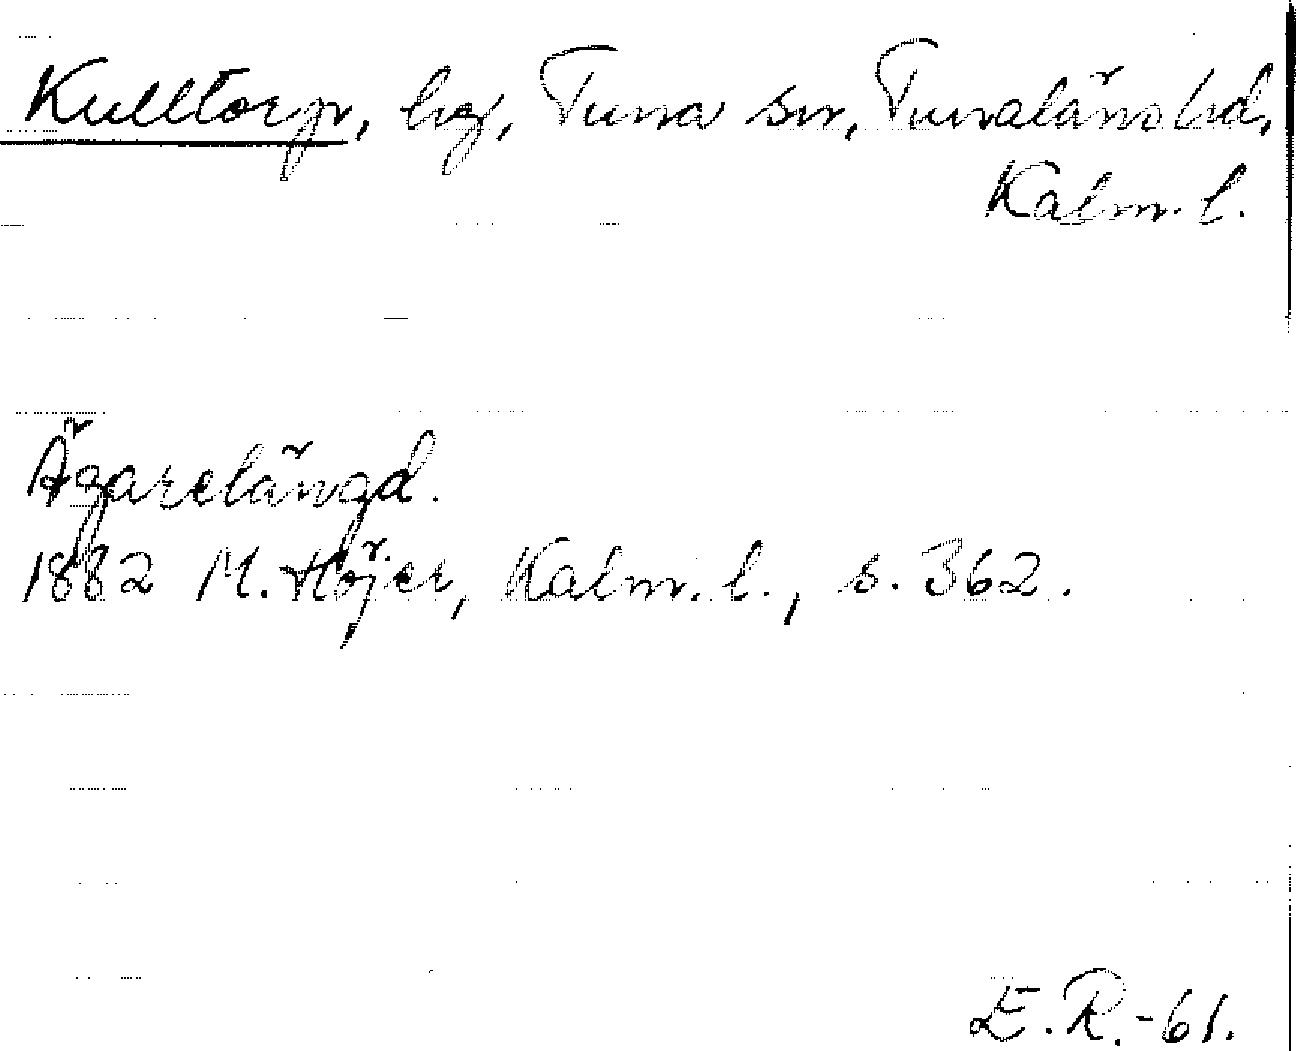 Kulltorp, hg, Tuna sn, Tunaläns hd,
Kalm. l.
Ägarelängd.
1882 M. Höjer, Kalm. l., s. 362.
E. R. -61.